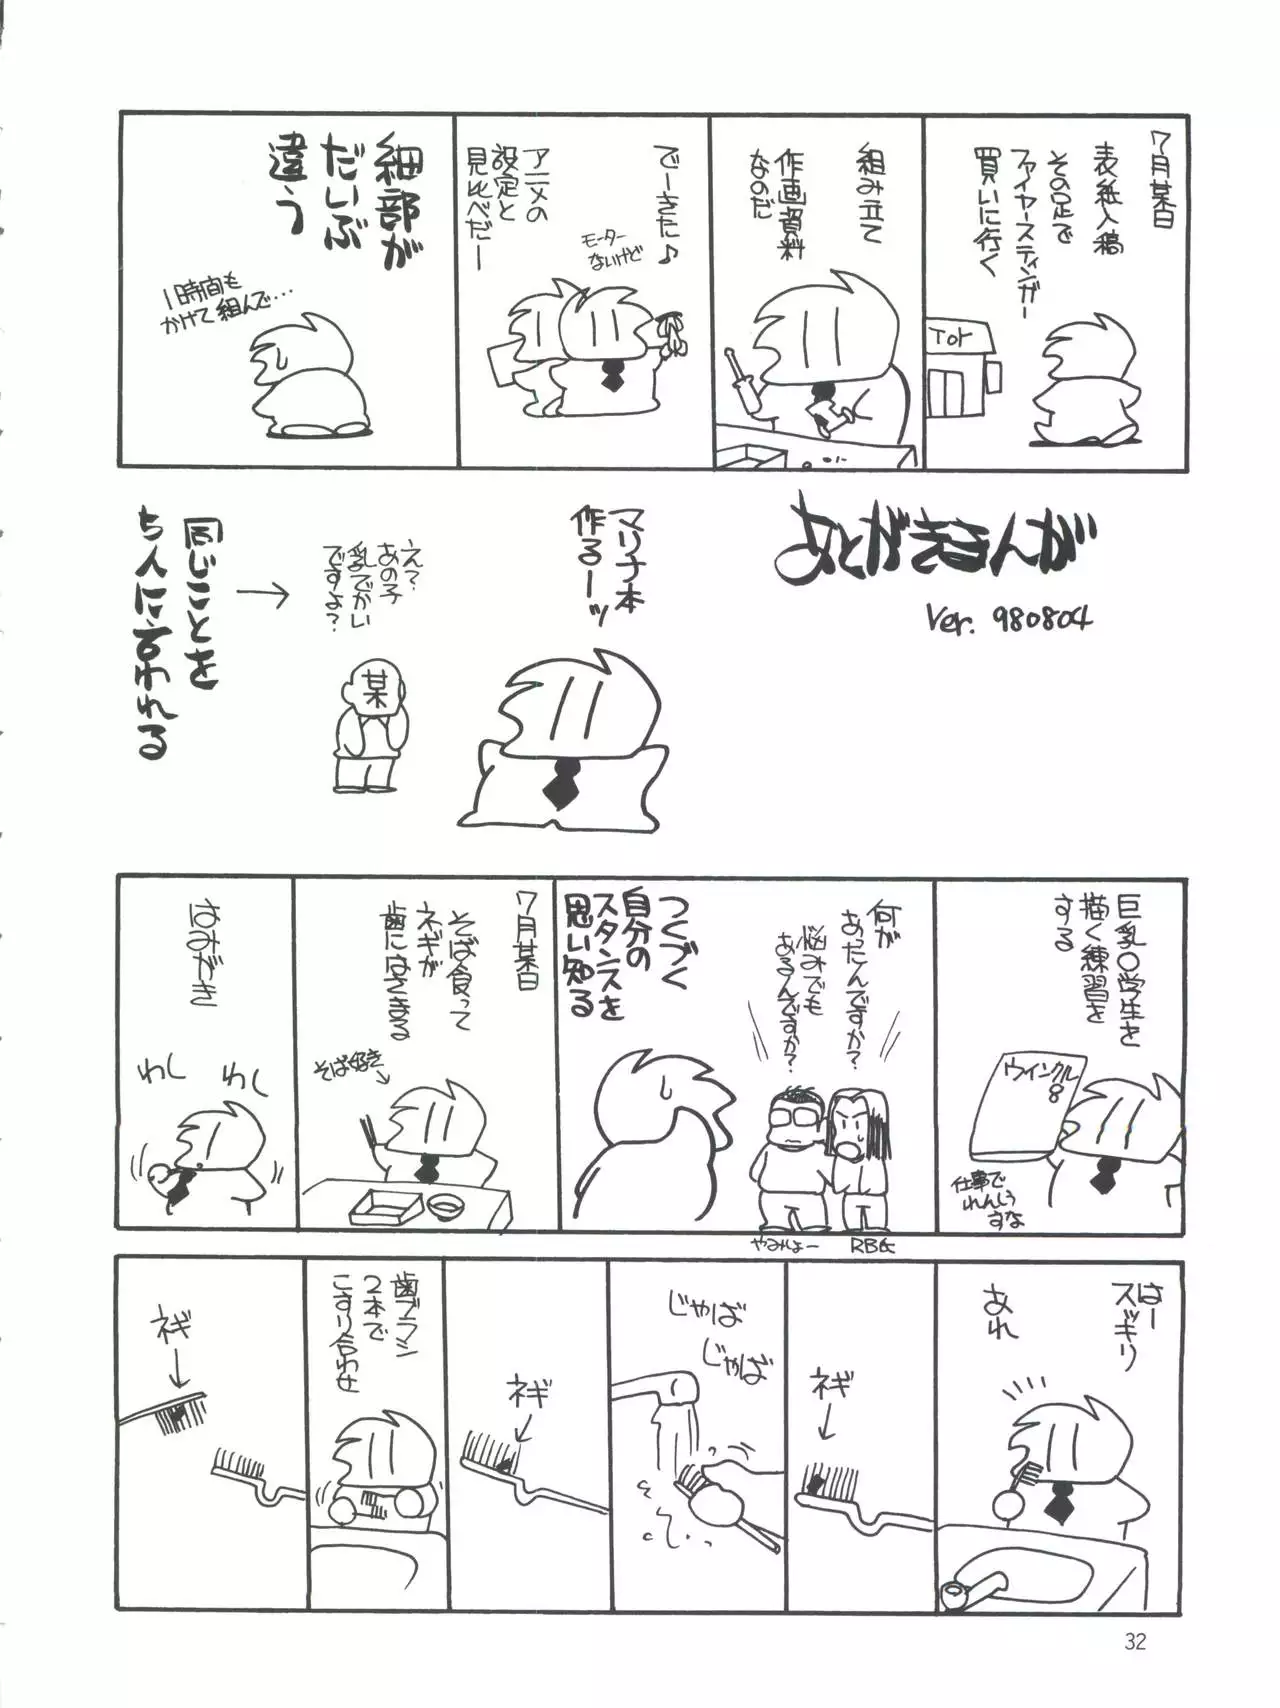 7月某日
表紙入稿
その足で
ファイヤースティンガー
買いに行く
Tor
組み立て
作画資料
なのだ
でーきた♪
モーター
ないけど
アニメの
設定と
見比べだー
細部が
だいぶ
違う
1時間も
かけて組んで…
あとがきまんが
Ver. 980804
マリナ本
作るーッ
え?
あの子
乳でかい
ですよ?
某
→
同じことを
5人に言われる
巨乳○学生を
描く練習を
する
ウインクル
8
仕事で
れんしう
すな
何が
あったんですか?
悩みでも
あるんですか?
RB氏
やみしょー
つくづく
自分の
スタンスを
思い知る
7月某日
そば食って
ネギが
歯にはさまる
そば好き
はみがき
わし
わし
はー
スッキリ
あれ
ネギ
じゃば
じゃば
ネギ
歯ブラシ
2本で
こすり合わせ
ネギ
32